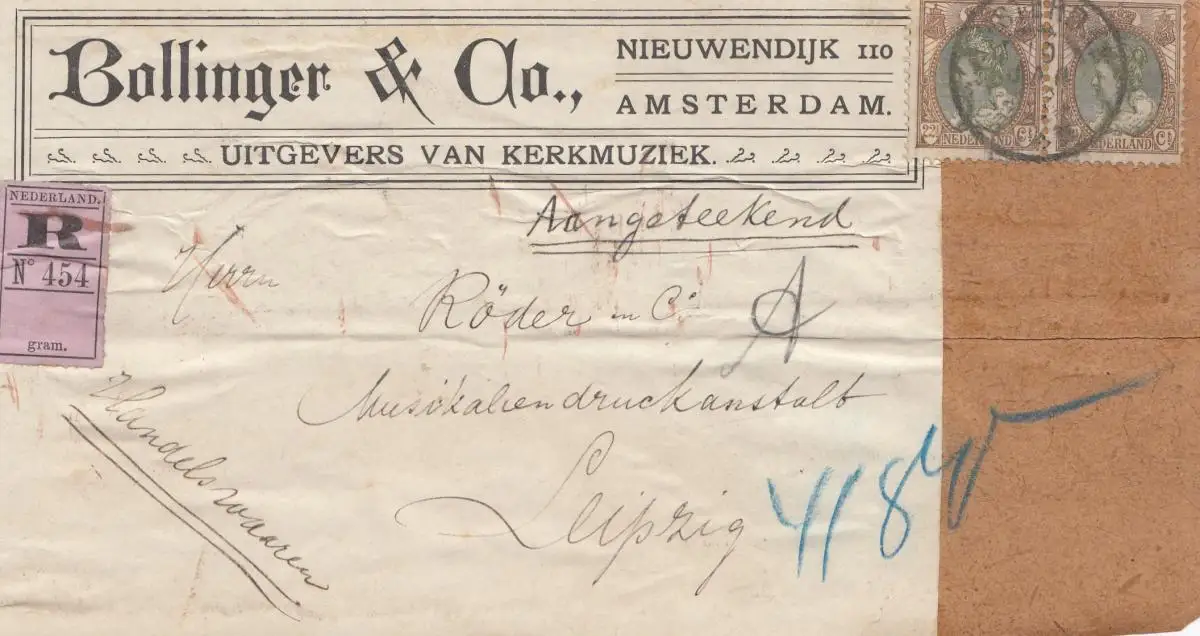 Bollinger & Co.,
NIEUWENDIJK 110
AMSTERDAM.
UITGEVERS VAN KERKMUZIEK.
22½ Ct
NEDERLAND
Ct
NEDERLAND
NEDERLAND.
R
No 454
gram.
Aangeteekend
Herrn
Röder en Co
A
Musikaliendruckanstalt
Leipzig
Handelswaaren